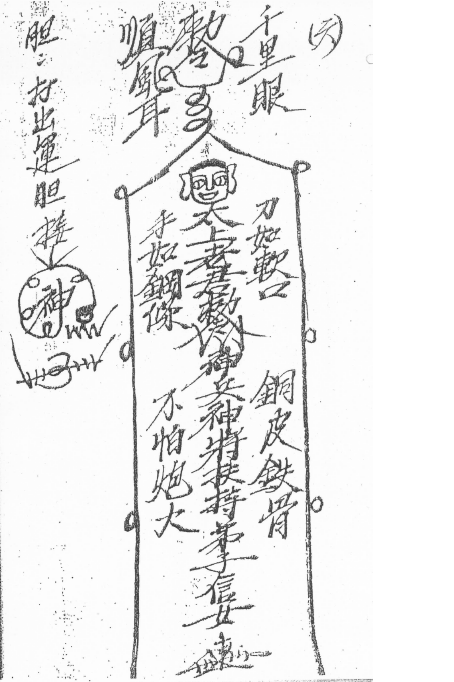 (六)
千里眼
勅令
順風耳
刀如軟口
太上老君勅令神兵神將扶持弟子信女
手如鋼條
銅皮鉄骨
不怕炮火
胆、打出運胆接
神